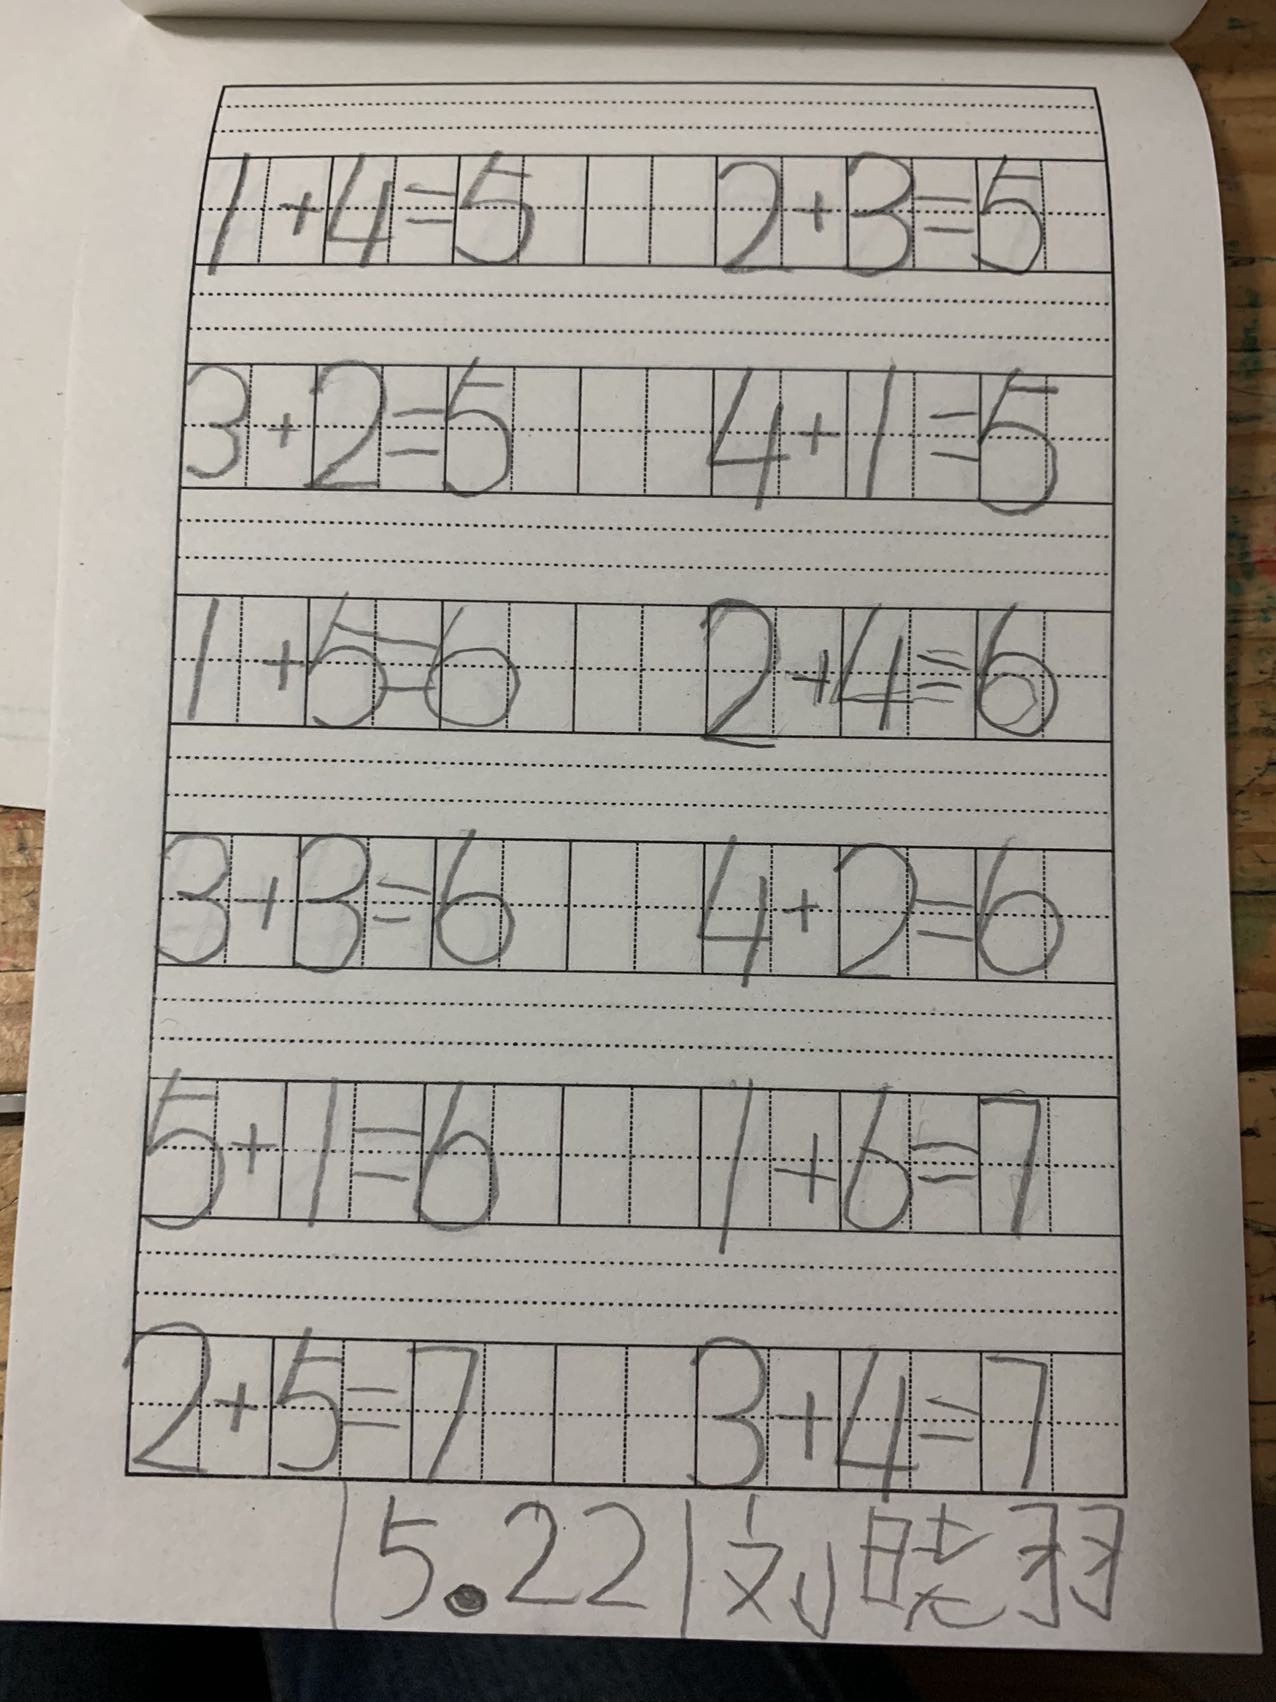 1+4=5 2+3=5
3+2=5 4+1=5
1+5=6 2+4=6
3+3=6 4+2=6
5+1=6 1+6=7
2+5=7 3+4=7
|5.22|刘晓羽